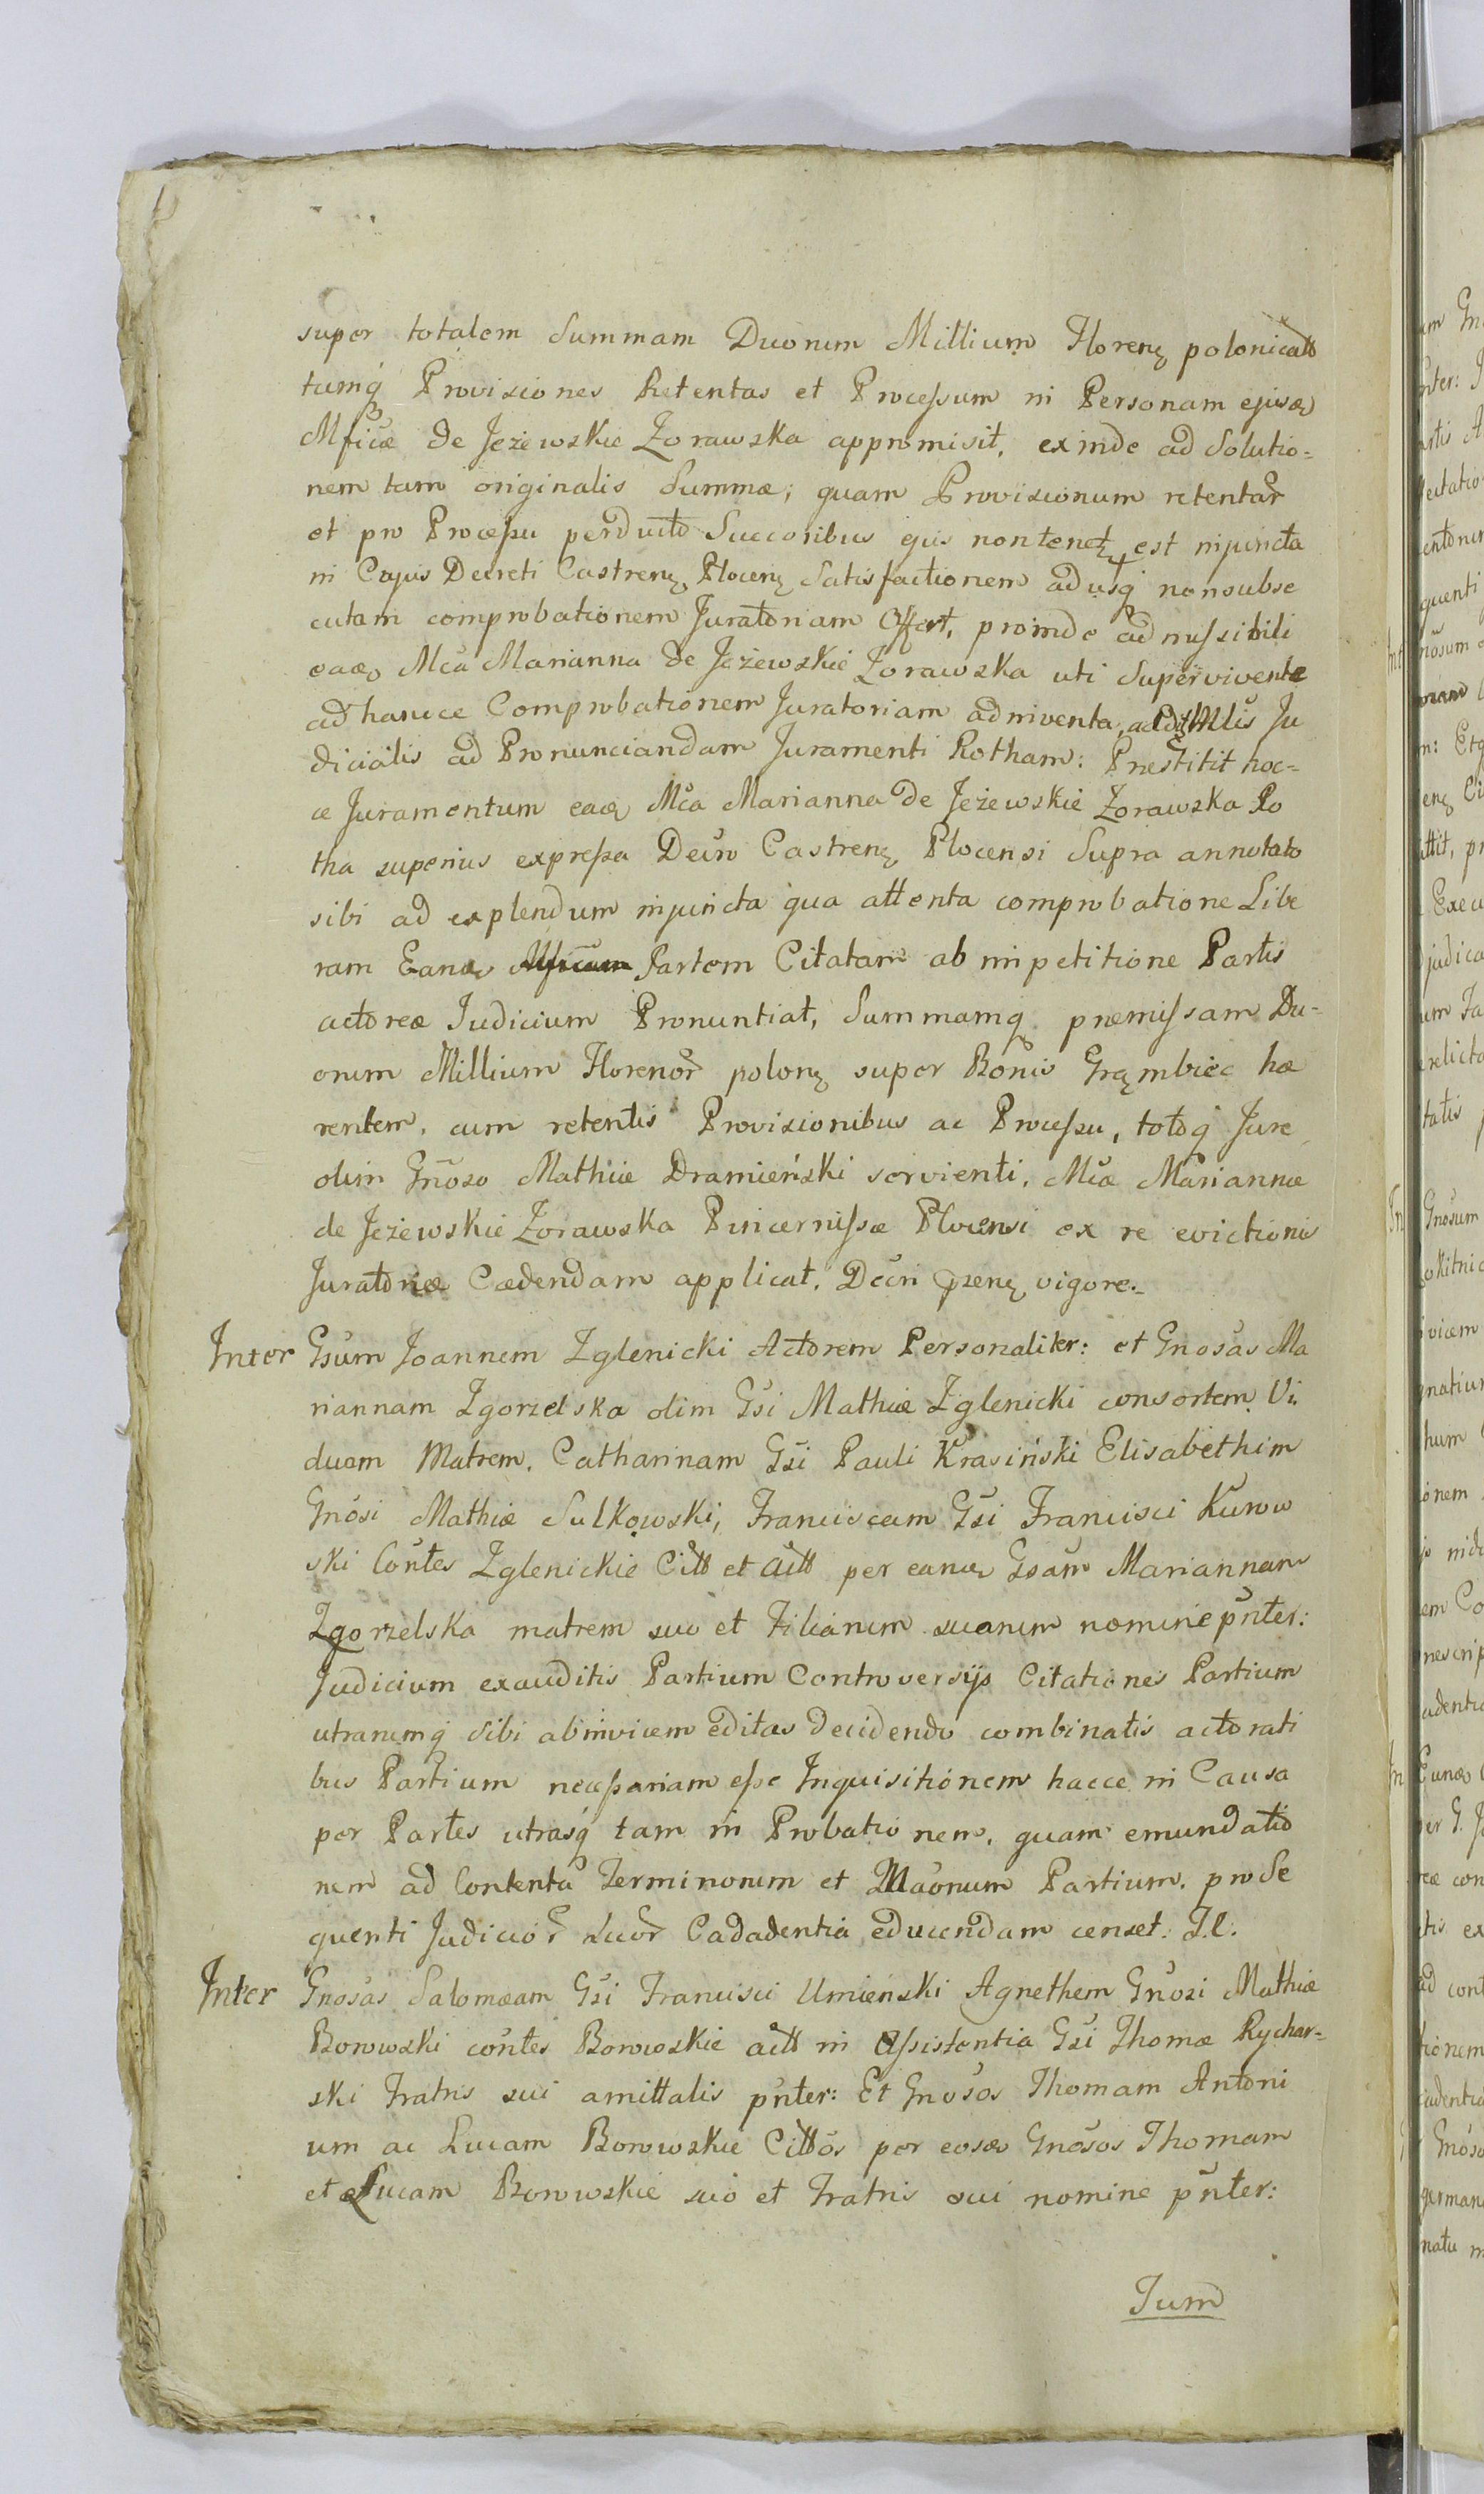 super totalem Summam Duorum Millium Florenꝫ polonicall
tumqꝫ Provisiones Retentas et Processum in Personam ejusꝫ
Mficæ de Jeżewskie Zorawska appromisit, exinde ad Solutio=
nem tam originalis Summæ; quam Provisionum retentar̃
et pro Processu perducto Succoribus ejus nontenetꝫ est injuncta
in Cujus Decreti Castrenꝫ Plocenꝫ Satisfactionem adusqꝫ nonsubse
cutam comprobationem Juratoriam Offert, proinde admissibili
eaꝫ Mc̃a Marianna de Jeżewskie Zorawska uti Supervivente
ad hancce Comprobationem Juratoriam adinventa, Mlis Ju
dicialis ad Pronunciandam Juramenti Rotham: Prestitit hoc=
ce Juramentum eaꝫ Mc̃a Marianna de Jeżewskie Zorawska Ro
tha superius expressa Decr̃o Castrenꝫ Plocensi Supra annotato
sibi ad explendum injuncta qua attenta comprobatione Libe
ram Eanꝫ Partem Citatam ab impetitione Partis
actoreæ Judicium Pronuntiat, Summamqꝫ premissam Du=
orum Millium Florenor̃ polonꝫ super Bonis Grąmbiec hæ
rentem, cum retentis Provisionibus ac Processu, totoqꝫ Jure
olim Gñoso Mathiæ Dramieński servienti, Mc̃æ Mariannæ
de Jeżewskie Zorawska Pincernissæ Plocensi ex re evictionis
Juratoriæ Cædendam applicat. Decr̃i p̃zenꝫ vigore._
Inter Gsum Joannem Zglenicki Actorem Personaliter: et Gnosas Ma
riannam Zgorzelska olim Gsi Mathiæ Zglenicki consortem Vi.
duam Matrem, Catharinam Gsi Pauli Krasiński Elisabethim
Gnosi Mathiæ Sulkowski, Franciscam Gsi Francisci Kurow
ski Contes Zglenickie Citt et actt per eanꝫ Gsam Mariannam
Zgorzelska matrem suo et Filiarum suarum nomine pñter:
Judicium exauditis Partium Controversijs Citationes Partium
utrarumqꝫ Sibi abinvicem editas Decidendo combinatis actorati
bus Partium necessariam esse Inquisitionem hacce in Causa
per Partes utrasqꝫ tam in Probationem, quam emundatio
nem ad Contenta Terminorum et Maonum Partium, pro Se
quenti Judicior̃ Lucor̃ Cadadentia educendam censet: J.C.
Inter Gnosas Salomæam Gsi Francisci Umieński Agnethem Gnosi Mathiæ
Borowski contes Borowskie actt in Assistentia Gsi Thomæ Rychar=
ski Fratris sui amittalis pñter: Et Gnosos Thomam Antoni
um ac Lucam Borowskie Cittos per eosꝫ Gnosos Thomam
et Lucam Borowskie suo et Fratris sui nomine pñter:
Jum